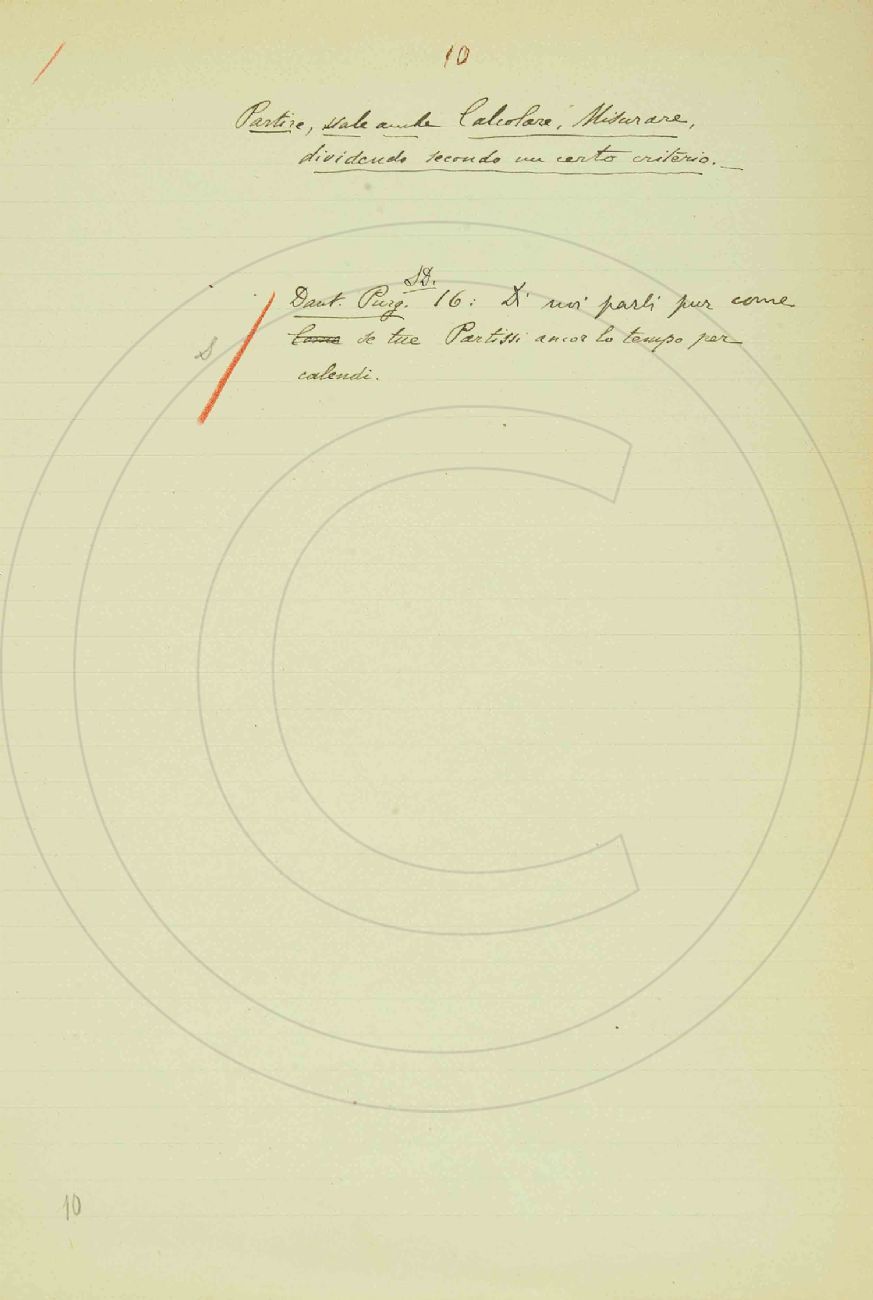 10
Partire, vale anche Calcolare, Misurare,
dividendo secondo un certo criterio. _
SD.
Dant. Purg. 16: Di noi parli pur come
Come se tue Partissi ancor lo tempo per
calendi.
S
10